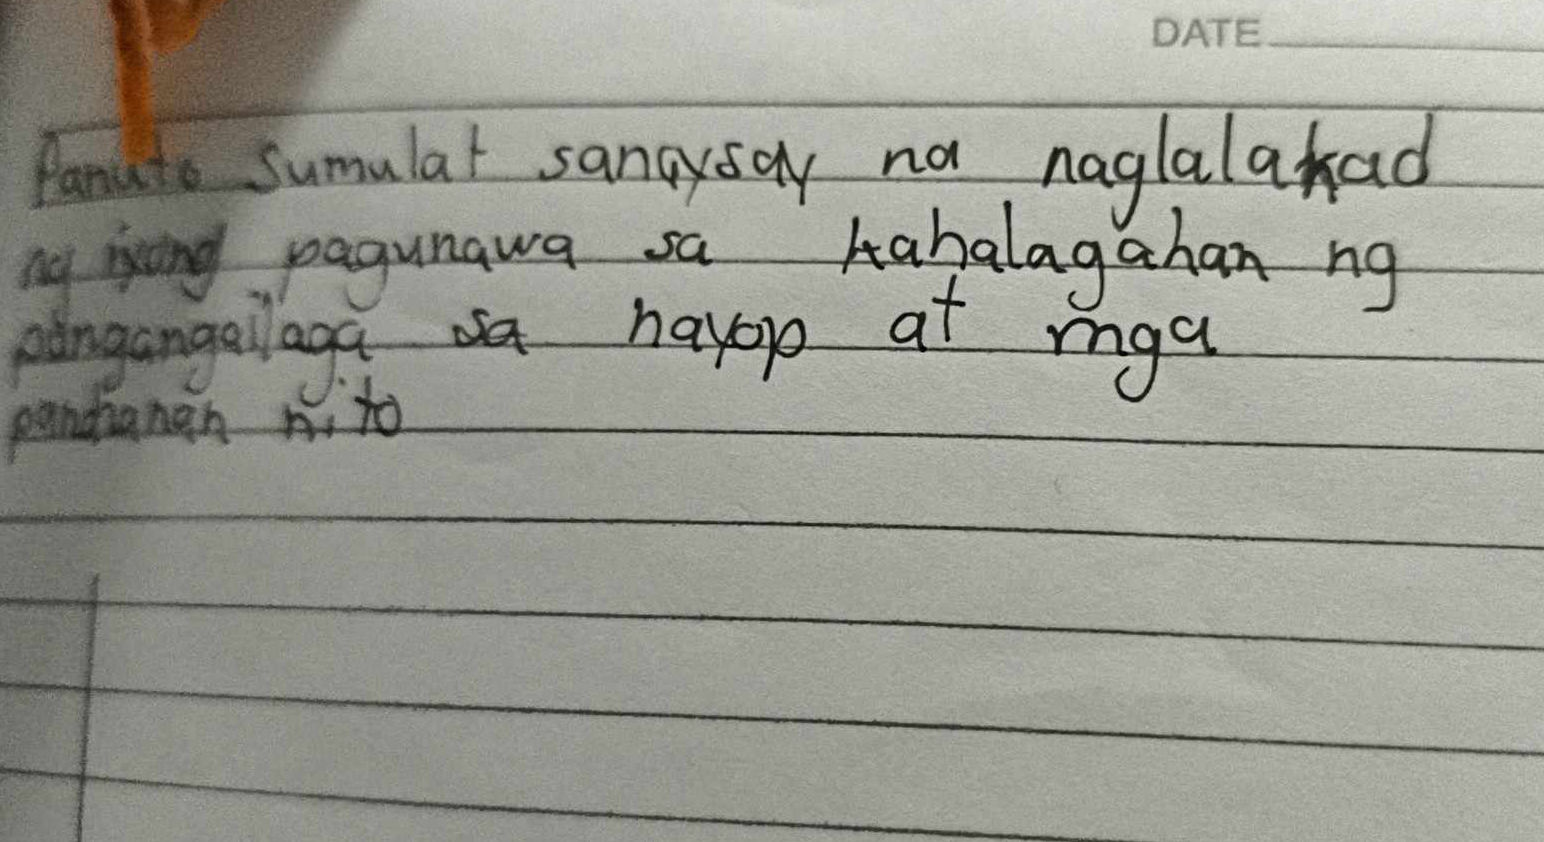 DATE
Panuto Sumulat sanaysay na naglalakad
ng isang pagunawa sa kahalagahan ng
pangangailaga sa hayop at mga
nito